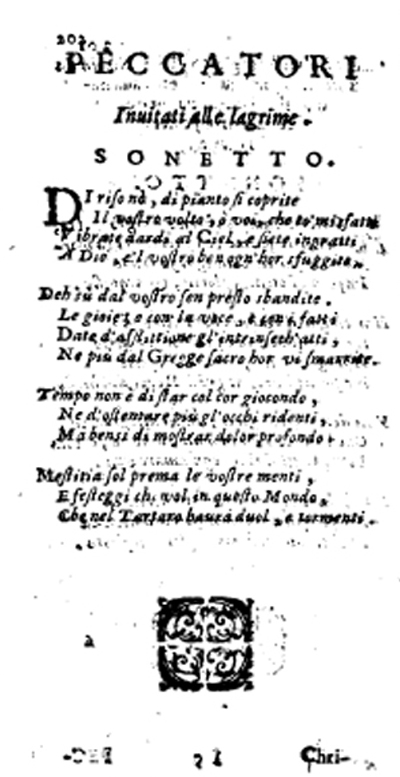 202
PECCATORI
Inuitati alle lagrime.
SONETTO.
DI riso nò, di pianto si coprite
Il vostro volto, ò voi, che co' misfatti
Vibrate dardi al Ciel, e siete ingratti
A Dio, e'l vostro ben ogn'hor sfuggite.
Deh sù dal vostro sen presto sbandite.
Le gioie, e con la voce, e con i fatti
Date d'afflittione gl'intrinsech'atti,
Ne più dal Gregge sacro hor vi smarrite.
Tempo non è di star col cor giocondo,
Ne d'ostentare più gl'occhi ridenti,
Mà bensì di mostrar dolor profondo.
Mestitia sol prema le vostre menti,
E festeggi chi vol, in questo Mondo,
Che nel Tartaro haurà duol, e tormenti.
Chri-